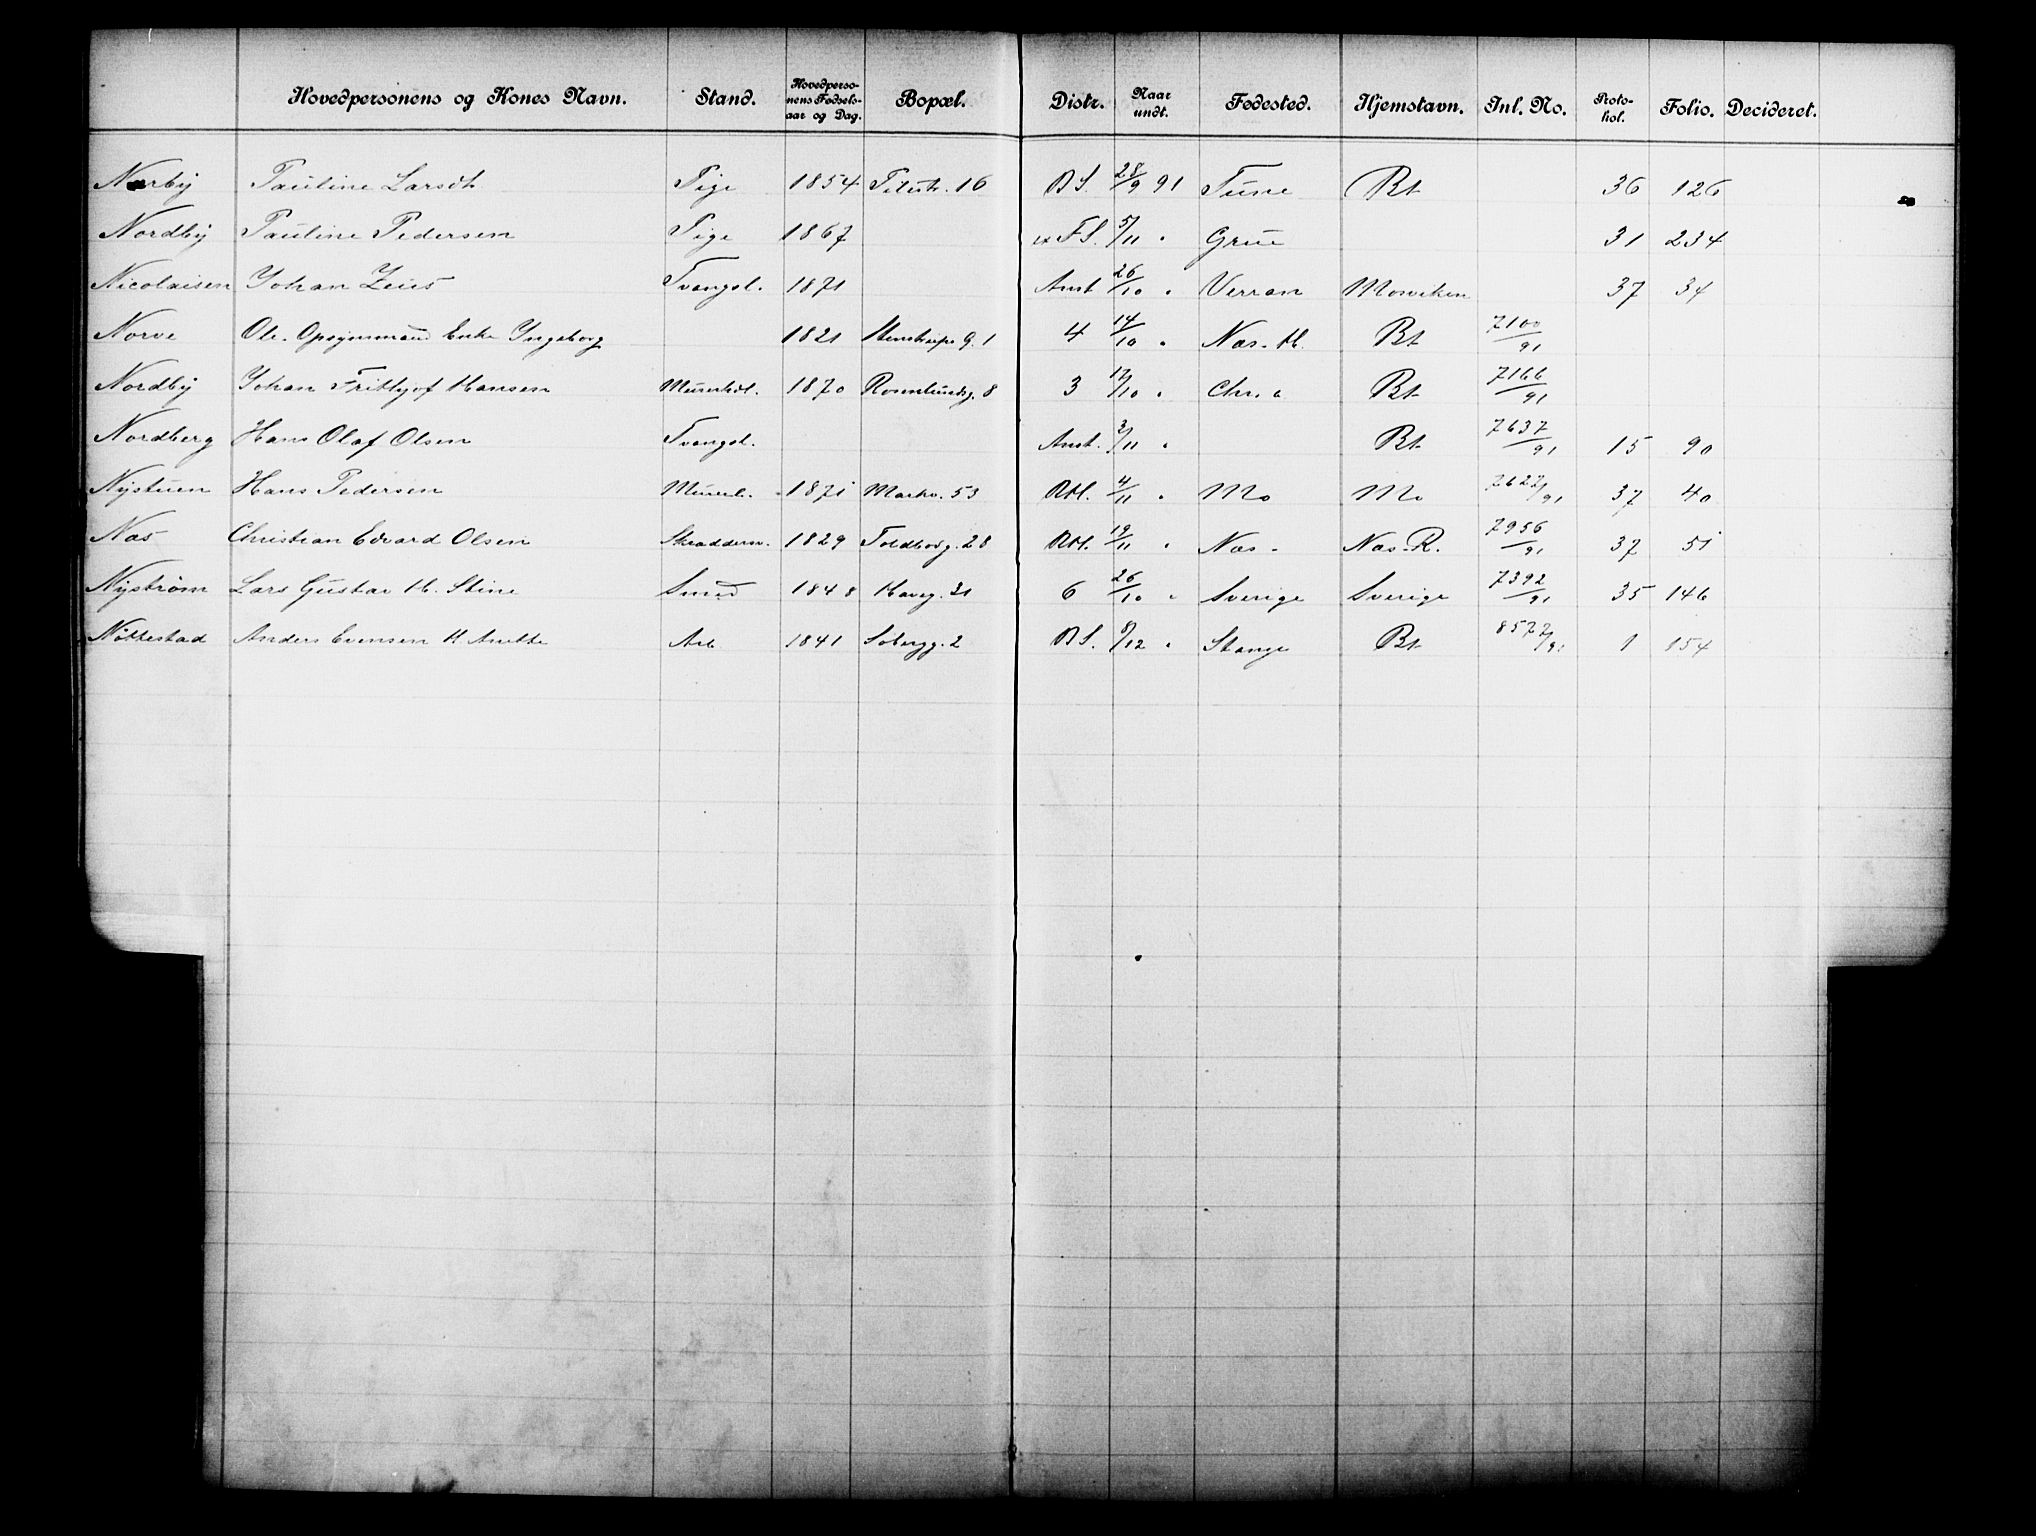 Hovedpersonens og Kones Navn. Stand. Hovedperso-nens Fødsels-aar og Dag. Bopæl. Distr. Naar undt. Fødested. Hjemstavn. Inl. No. Proto-kol. Folio. Decideret.
Nærby Pauline Larsdt Pige 1854 16 BS. 28/9 91 Tune Bt 36 126
Nordby Pauline Pedersen Pige 1867 FS. 5/11 " Grue 31 234
Nicolaisen Johan Zeus Tvangsl. 1871 Anst 26/10 " Verran Mosviken 37 34
Norve Ole. Opsynsmand Enke Ingeborg 1821 Stenstrups g. 1 4 14/10 " Næs. H. Bt 7100/91
Nordby Johan Frithjof Hansen 1870 Rosenlundsg. 8 3 17/10 " Chr. a Bt 7166/91
Nordberg Hans Olaf Olsen Tvangsl. Anst. 3/11 " Bt 7637/91 15 90
Nystuen Hans Pedersen Murerl. 1871 Markv. 53 RH. 4/11 " Mo Mo 7627/91 37 40
Næs Christian Edvard Olsen Skræddersv. 1829 Toldbodg. 28 RH. 19/11 " Næs - Næs. R. 7956/91 37 51
Nystrøm Lars Gustav H. Stine Smed 1848 Haveg. 21 6 26/10 " Sverige Sverige 7392/91 35 146
Nøttestad Anders Evensen H Anette Arb 1841 Sobergg. 2 BS. 8/12 " Stange Bt 8577/91 1 154